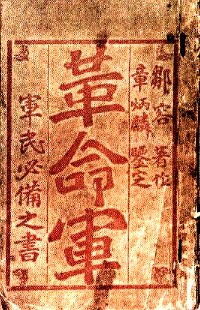 鄒容著作
章炳麟鑒定
革命軍
軍民必備之書